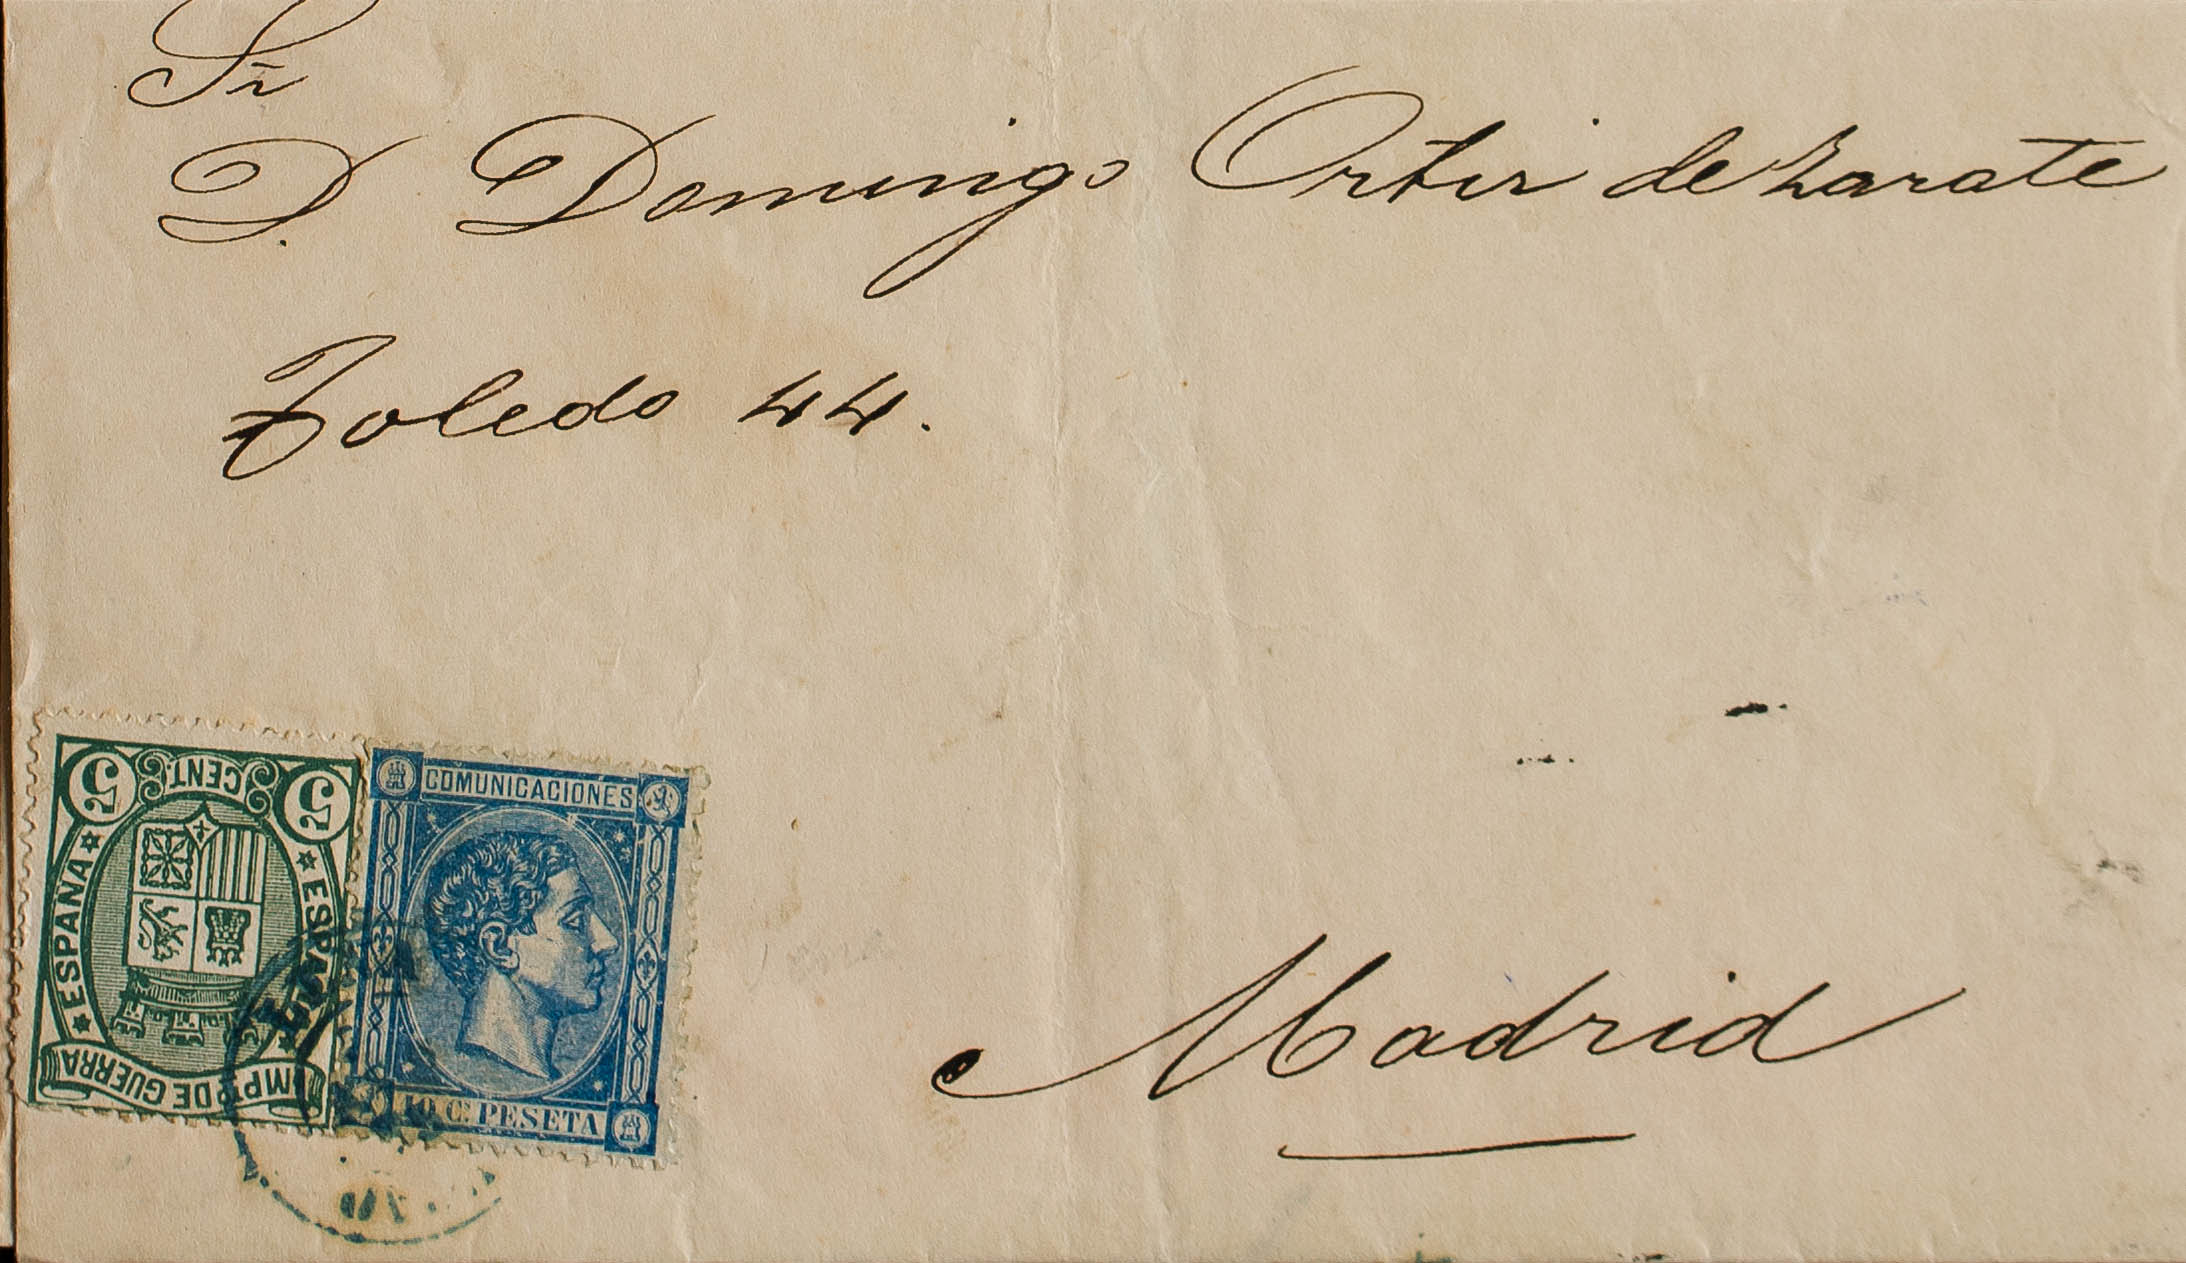 Sr
D. Domingo Ortiz de Zarate
Toledo 44.
Madrid
5 CENT. 5
ESPAÑA
ESPAÑA
IMPTO DE GUERRA
COMUNICACIONES
10 C. PESETA